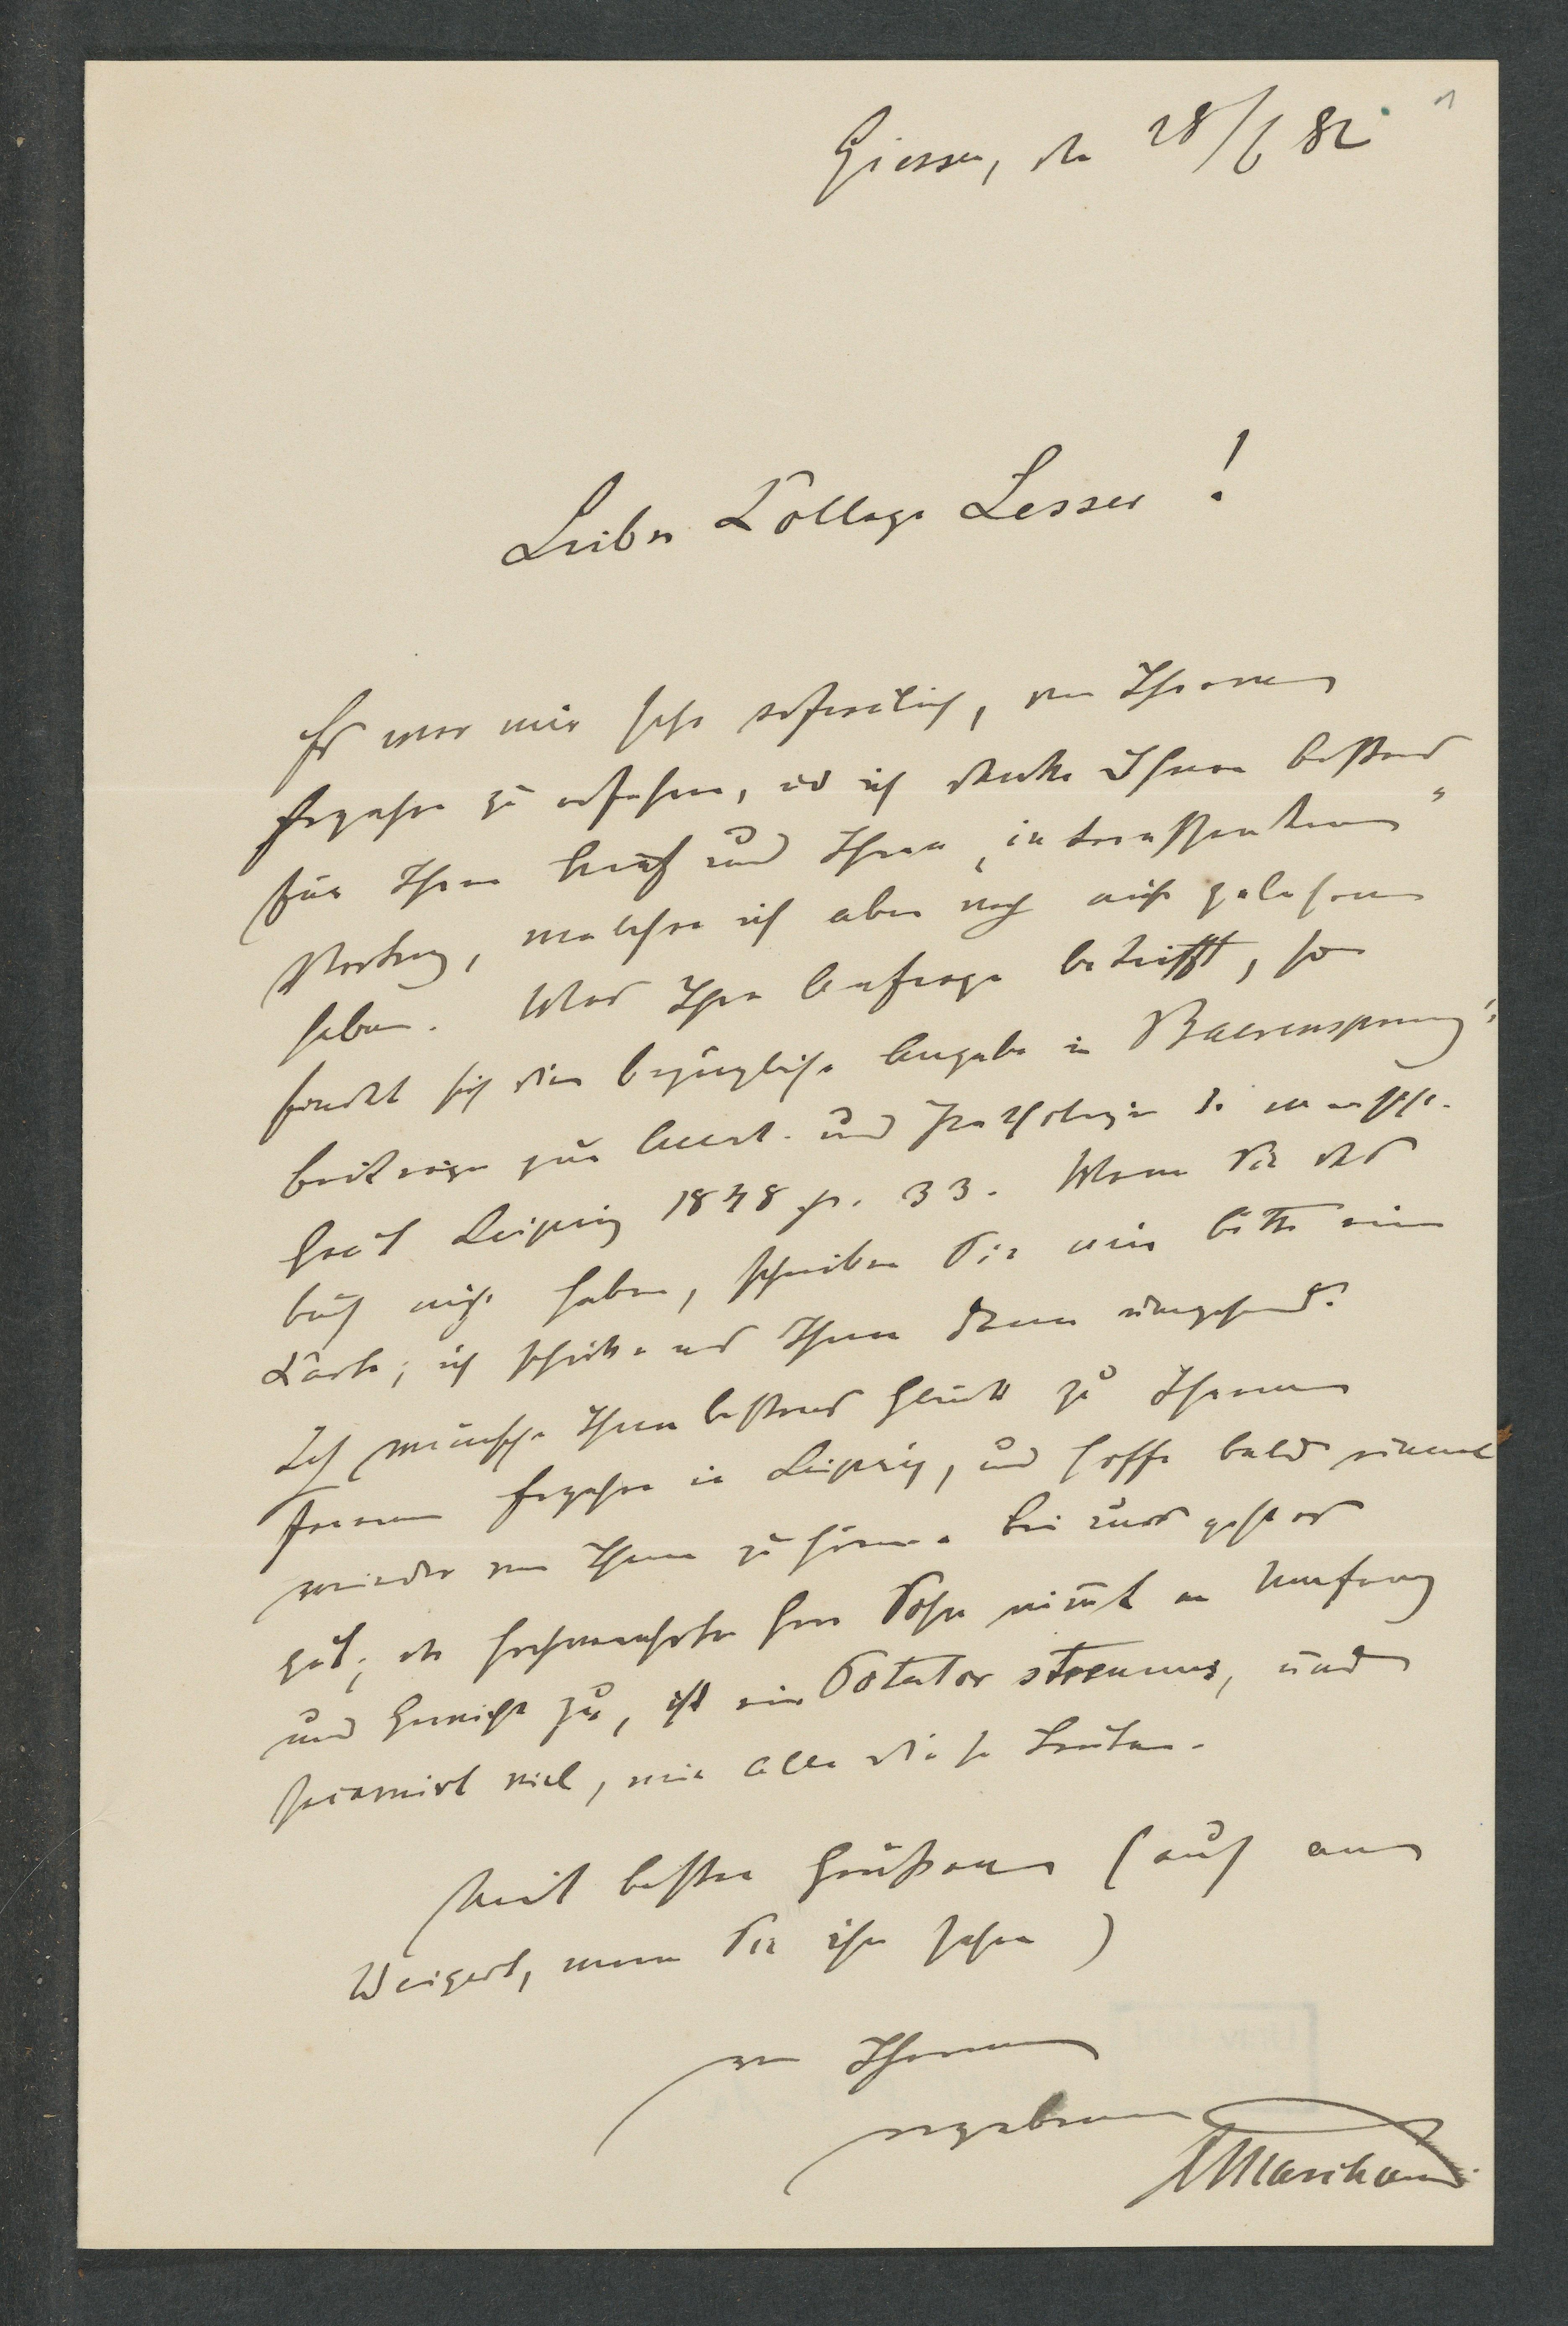 Giessen, den 28/6 82
Lieber College Lesser!
Es war mir sehr erfreulich, von Ihrem
Ergehen zu erfahren, und ich danke Ihnen bestens
für Ihren Brief und Ihren „interessanten"
Vortrag, welchen ich aber noch nicht gelesen
habe. Was Ihre Anfrage betrifft, so
findet sich die bezügliche Angabe in Baerensprung's
Beiträge zur Anat. und Pathologie d. menschl.
Haut Leipzig 1848 p. 33. Wenn Sie das
Buch nicht haben, schreiben Sie mir bitte eine
Karte; ich schicke es Ihnen dann umgehend.
Ich wünsche Ihnen bestens Glück zu Ihrem
ferneren Ergehen in Leipzig, und hoffe bald einmal
wieder von Ihnen zu hören. Bei uns geht es
gut; der Herr Sohn nimt an Umfang
und Gewicht zu, ist ein Potator strenuus, und
schreit viel, wie alle diese
Mit besten Grüßen (auch an
Weigert, wenn Sie ihn sehen)
der Ihrige
ergebenst
FMarchand